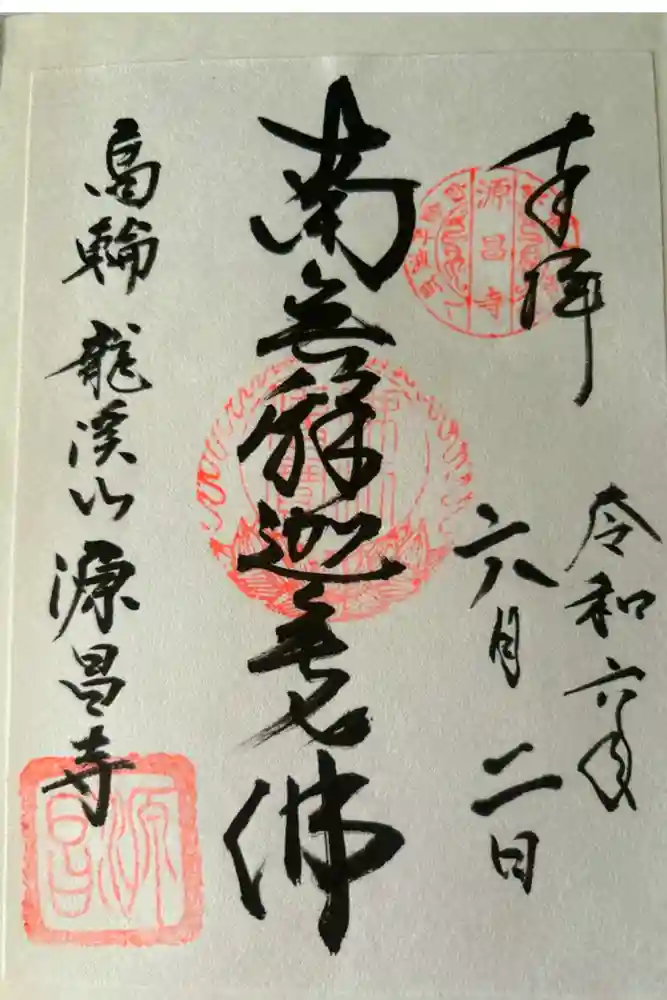 奉拝
令和六年
六月二日
南無釈迦牟尼佛
高輪 龍渓山 源昌寺
源昌寺
源昌